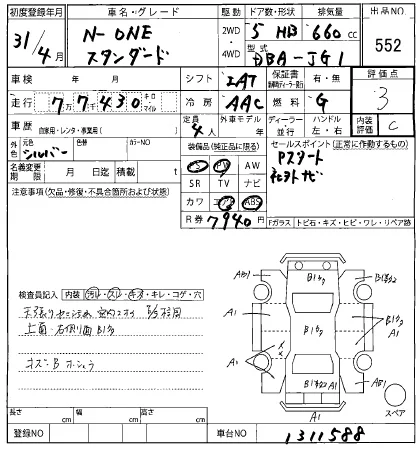 初度登録年月 車名・グレード 駆動 ドア数・形状 排気量 出品NO
31/4月 N-ONE スタンダード 2WD・4WD 5 HB 660cc 552
型式 DBA-JG1
車検 年 月 シフト IAT 保証書 有・無 評価点 3
走行 77430 キロ・マイル 冷房 AAC 燃料 G
車歴 自家用・レンタ・事業用( ) 定員 4人 外車モデル 年 ディーラー 並行 ハンドル 左・右 内装評価 C
外色 元色 シルバー 色替 カラーNO 装備品(純正品に限る) セールスポイント(正常に作動するもの)
名義変更期限 月 日迄 積載 t PS PW AW Pスタート
SR TV ナビ 社外ナビ
注意事項(欠品・修復・不具合箇所および状態) カワ エアB ABS
R券 7940円
Fガラス トビ石・キズ・ヒビ・ワレ・リペア跡
検査員記入 内装 汚レ・スレ・キズ・キレ・コゲ・穴
上面・右側面B1多
キズ・B
A1 B1多ク B1多ク
A1 B1多ク B1多ク A1
A1
A1 AB1
A1 スペア
長さ cm 幅 cm 高さ cm
登録NO 車台NO 1311588